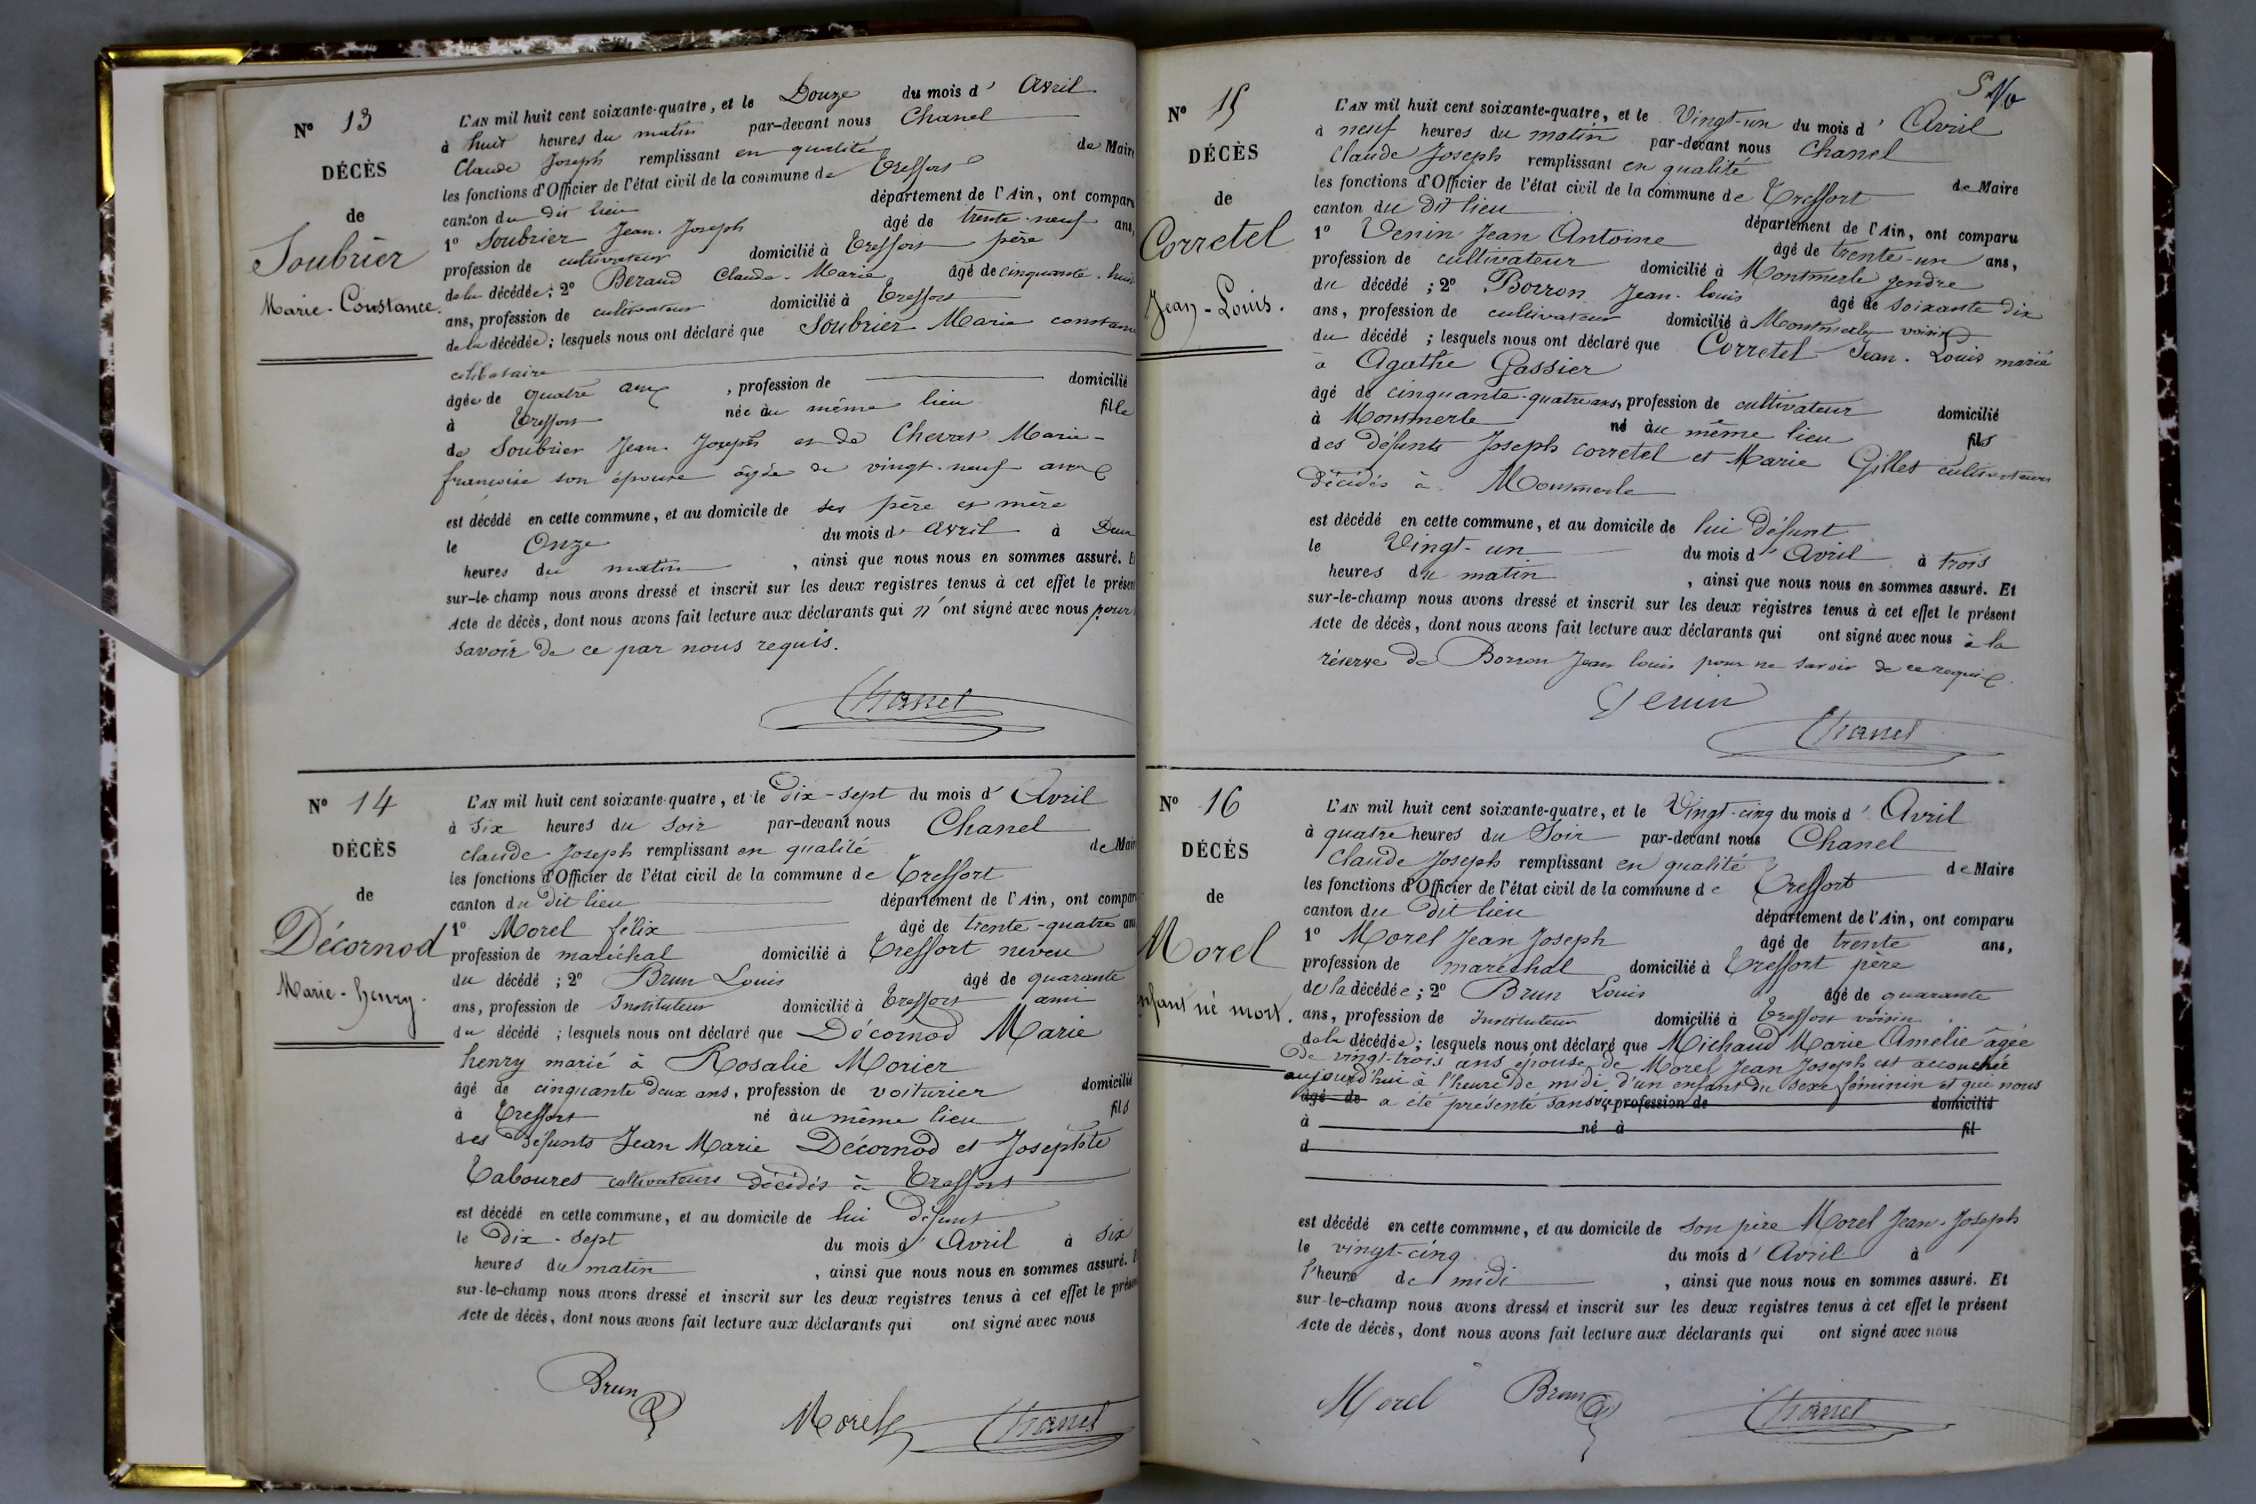 N° 13
DÉCÈS
de
Soubrier
Marie-Constance.
L'AN mil huit cent soixante-quatre, et le Douze du mois d' Avril
à huit heures du matin par-devant nous Chanel
Claude Joseph remplissant en qualité de Maire
les fonctions d'Officier de l'état civil de la commune de Treffort
canton du dit lieu département de l'Ain, ont comparu
1° Soubrier Jean-Joseph âgé de trente-neuf ans,
profession de cultivateur domicilié à Treffort père
de la décédée; 2° Beraud Claude-Marie âgé de cinquante-huit
ans, profession de cultivateur domicilié à Treffort
de la décédée; lesquels nous ont déclaré que Soubrier Marie constance
célibataire
âgée de quatre ans, profession de domicilié
à Treffort née au même lieu fille
de Soubrier Jean-Joseph et de Chevrat Marie-
françoise son épouse âgée de vingt-neuf ans
est décédé en cette commune, et au domicile de ses père et mère
le Onze du mois d' Avril à Deux
heures du matin, ainsi que nous nous en sommes assuré. Et
sur-le-champ nous avons dressé et inscrit sur les deux registres tenus à cet effet le présent
Acte de décès, dont nous avons fait lecture aux déclarants qui n'ont signé avec nous pour
savoir de ce par nous requis.
Chanel
N° 14
DÉCÈS
de
Décornod
Marie-henry.
L'AN mil huit cent soixante-quatre, et le Dix-sept du mois d' Avril
à Six heures du Soir par-devant nous Chanel
claude-Joseph remplissant en qualité de Maire
les fonctions d'Officier de l'état civil de la commune de Treffort
canton du Dit lieu département de l'Ain, ont comparu
1° Morel félix âgé de trente-quatre ans
profession de maréchal domicilié à Treffort neveu
du décédé; 2° Brun Louis âgé de quarante
ans, profession de Instituteur domicilié à Treffort ami
du décédé; lesquels nous ont déclaré que Décornod Marie
henry marié à Rosalie Morier
âgé de cinquante deux ans, profession de voiturier domicilié
à Treffort né au même lieu fils
des Défunts Jean Marie Décornod et Josephte
Tabouret cultivateurs décédés à Treffort
est décédé en cette commune, et au domicile de lui défunt
le Dix-Sept du mois d' Avril à Six
heures du matin, ainsi que nous nous en sommes assuré. Et
sur-le-champ nous avons dressé et inscrit sur les deux registres tenus à cet effet le présent
Acte de décès, dont nous avons fait lecture aux déclarants qui ont signé avec nous
Brun
Morel Chanel
N° 15
DÉCÈS
de
Corretel
Jean-Louis.
L'AN mil huit cent soixante-quatre, et le Vingt-un du mois d' Avril
à neuf heures du matin par-devant nous Chanel
Claude Joseph remplissant en qualité de Maire
les fonctions d'Officier de l'état civil de la commune de Treffort
canton du Dit lieu département de l'Ain, ont comparu
1° Venin Jean Antoine âgé de trente-un ans,
profession de cultivateur domicilié à Montmerle gendre
du décédé; 2° Borron Jean-louis âgé de soixante dix
ans, profession de cultivateur domicilié à Montmerle voisin
du décédé; lesquels nous ont déclaré que Corretel Jean-Louis marié
à Agathe Gassier
âgé de cinquante-quatre ans, profession de cultivateur domicilié
à Montmerle né au même lieu fils
des Défunts Joseph corretel et Marie Gillet cultivateurs
décédés à Montmerle
est décédé en cette commune, et au domicile de lui défunt
le Vingt-un du mois d' Avril à trois
heures du matin, ainsi que nous nous en sommes assuré. Et
sur-le-champ nous avons dressé et inscrit sur les deux régistres tenus à cet effet le présent
Acte de décès, dont nous avons fait lecture aux déclarants qui ont signé avec nous à la
réserve de Borron Jean louis pour ne savoir de ce requis.
Venin
Chanel
N° 16
DÉCÈS
de
Morel
enfant né mort.
L'AN mil huit cent soixante-quatre, et le Vingt-cinq du mois d' Avril
à quatre heures du Soir par-devant nous Chanel
Claude Joseph remplissant en qualité de Maire
les fonctions d'Officier de l'état civil de la commune de Treffort
canton du Dit lieu département de l'Ain, ont comparu
1° Morel Jean Joseph âgé de trente ans,
profession de maréchal domicilié à Treffort père
de la décédée; 2° Brun Louis âgé de quarante
ans, profession de Instituteur domicilié à Treffort voisin
de la décédée; lesquels nous ont déclaré que Michaud Marie Amélie âgée
de vingt-trois ans épouse de Morel Jean Joseph est accouchée
aujourd'hui à l'heure de midi, d'un enfant du sexe féminin et qui nous
âgé de a été présenté sans vie, profession de domicilié
à né à fil
d
est décédé en cette commune, et au domicile de son père Morel Jean-Joseph
le vingt-cinq du mois d' Avril à
l'heure de midi, ainsi que nous nous en sommes assuré. Et
sur-le-champ nous avons dressé et inscrit sur les deux registres tenus à cet effet le présent
Acte de décès, dont nous avons fait lecture aux déclarants qui ont signé avec nous
Morel Brun Chanel